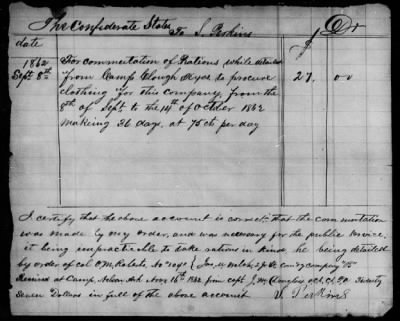 The Confederate States To S. Perkins Dr
date
1862 For commutation of Rations while detailed
Sept 8th from Camp Clough Ryes to procure 27. 00
clothing for this company, from the
9th of Sept. to the 14th of October 1862
making 36 days, at 75 cts per day
I certify that the above account is correct; that the commutation
was made by my order, and was necessary for the public service,
it being impracticable to take rations in kind he being detailed
by order of Col. O. M. Roberts, No
Received at Camp Nelson Ark Nov 16th 1862 from capt J. M. Twenty
Seven Dollars in full of the above account S. Perkins